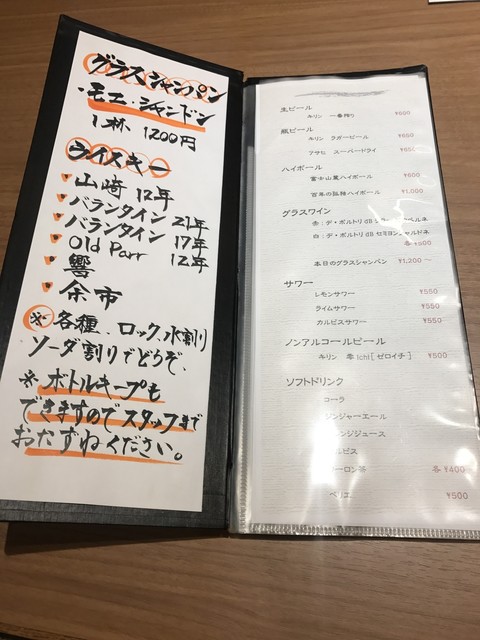 グラスシャンパン
・モエ・シャンドン
1杯 1200円
ウイスキー
山崎 12年
バランタイン 21年
バランタイン 17年
Old Parr 12年
響
余市
※各種、ロック、水割り
ソーダ割りでどうぞ、
※ボトルキープも
できますのでスタッフまで
おたずねください。
生ビール
キリン 一番搾り ¥600
瓶ビール
キリン ラガービール ¥650
アサヒ スーパードライ ¥650
ハイボール
富士山麓ハイボール ¥600
百年の孤独ハイボール ¥1,000
グラスワイン
赤：デ・ボルトリ dB
白：デ・ボルトリ dB セミヨンシャルドネ
各 ¥500
本日のグラスシャンパン ¥1,200 〜
サワー
レモンサワー ¥550
ライムサワー ¥550
カルピスサワー ¥550
ノンアルコールビール
キリン 零ICHI [ ゼロイチ ] ¥500
ソフトドリンク
コーラ
ジンジャーエール
ンジジュース
ルピス
ーロン茶 各 ¥400
ペリエ ¥500